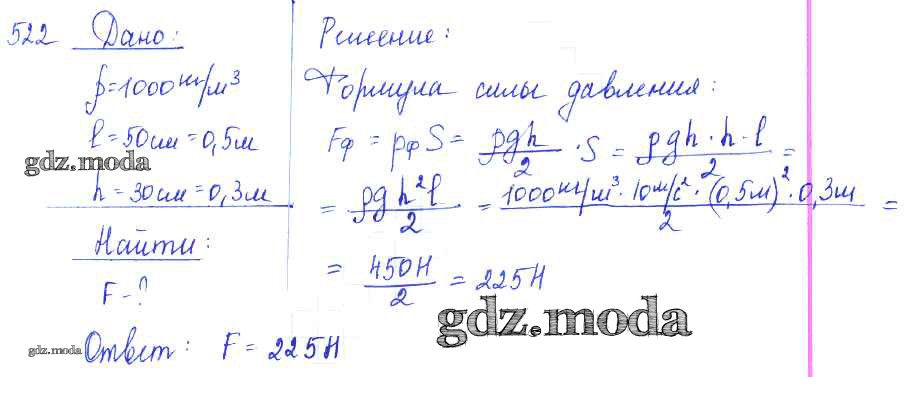 522 Дано:
ρ=1000кг/м³
l=50см=0,5м
gdz.moda
h=30см=0,3м
Найти:
F-?
Решение:
Формула силы давления:
Fф = pф S = ρgh/2 · S = ρgh·h·l/2 =
= ρgh²l/2 = 1000кг/м³·10м/с²·(0,5м)²·0,3м/2 =
= 450Н/2 = 225Н
gdz.moda
gdz.moda Ответ: F = 225Н